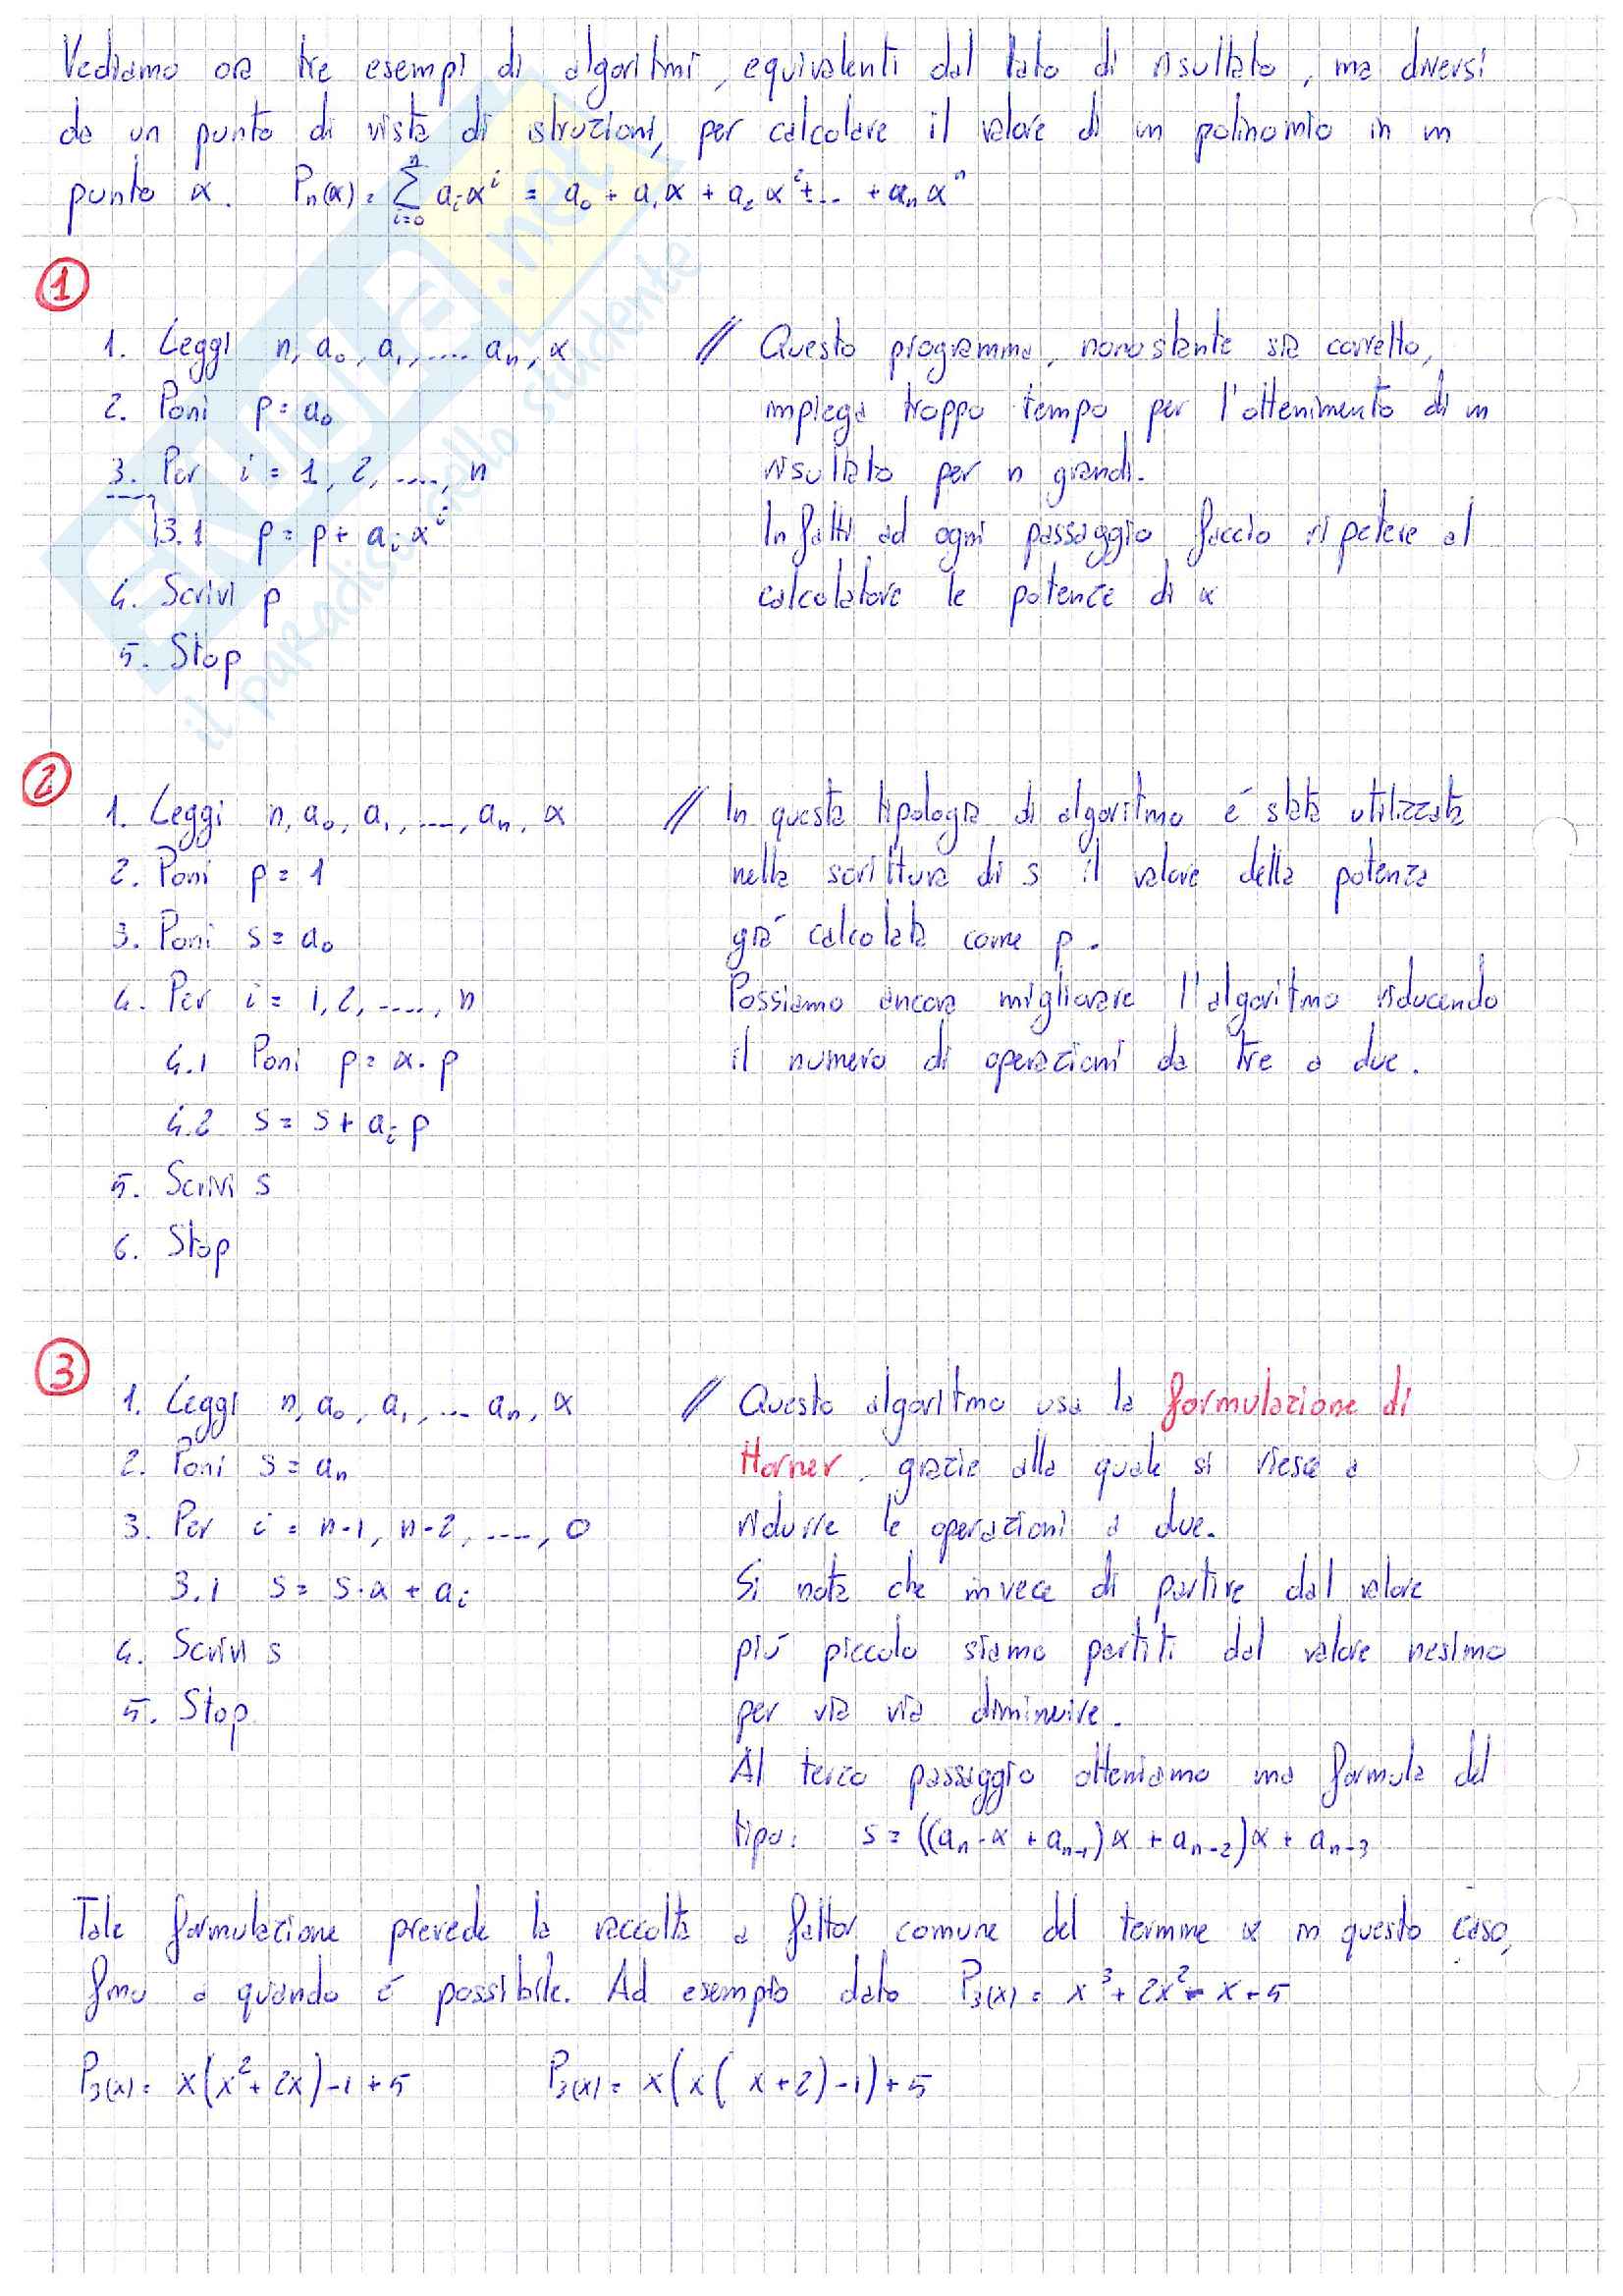 Vediamo ora tre esempi di algoritmi, equivalenti dal lato di risultato, ma diversi
da un punto di vista di istruzioni, per calcolare il valore di un polinomio in un
punto α. Pn(α) = ∑_{i=0}^{n} aᵢαⁱ = a₀ + a₁α + a₂α² + ... + aₙαⁿ
1
1. Leggi n, a₀, a₁, .... aₙ, α
2. Poni p = a₀
3. Per i = 1, 2, ...., n
3.1 p = p + aᵢ αⁱ
4. Scrivi p
5. Stop
// Questo programma, nonostante sia corretto,
impiega troppo tempo per l'ottenimento di un
risultato per n grandi.
Infatti ad ogni passaggio faccio ripetere al
calcolatore le potenze di α
il paradiso dello studente
.net
2
1. Leggi n, a₀, a₁, ...., aₙ, α
2. Poni p = 1
3. Poni s = a₀
4. Per i = 1, 2, ...., n
4.1 Poni p = α · p
4.2 s = s + aᵢ p
5. Scrivi s
6. Stop
// In questa tipologia di algoritmo é stata utilizzata
nella scrittura di s il valore della potenza
giá calcolata come p.
Possiamo ancora migliorare l'algoritmo riducendo
il numero di operazioni da tre a due.
3
1. Leggi n, a₀, a₁, ... aₙ, α
2. Poni s = aₙ
3. Per i = n-1, n-2, ...., 0
3.1 s = s · α + aᵢ
4. Scrivi s
5. Stop
// Questo algoritmo usa la formulazione di
Horner, grazie alla quale si riesce a
ridurre le operazioni a due.
Si nota che invece di partire dal valore
piú piccolo siamo partiti dal valore nesimo
per via via diminuire.
Al terzo passaggio otteniamo una formula del
tipo: s = ((aₙ · α + aₙ₋₁)α + aₙ₋₂)α + aₙ₋₃
Tale formulazione prevede la raccolta a fattor comune del termine α in questo caso,
fino a quando é possibile. Ad esempio dato P₃(x) = x³ + 2x² - x + 5
P₃(x) = x(x² + 2x) - 1 + 5 P₃(x) = x(x( x + 2) - 1) + 5